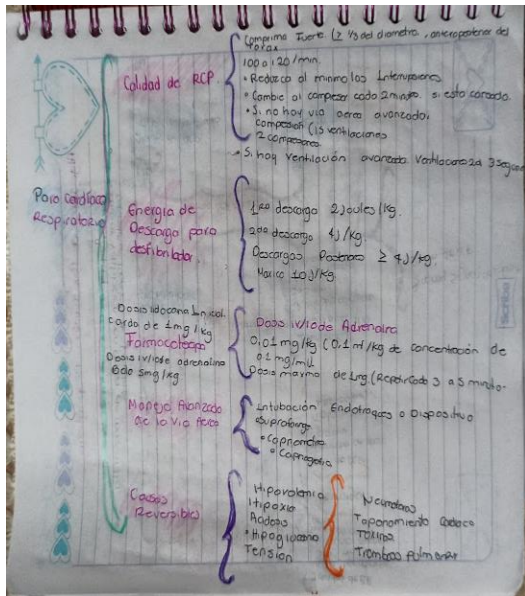 Comprima Fuerte. (≥ 1/3 del diametro, anteroposterior del
torax
100 a 120/min.
• Reduzca al minimo las Interrupciones
• Cambie al compresor cada 2 minutos si esta cansado.
• Si no hay via aerea avanzada.
compresion (15 ventilaciones
2 compresiones
• Si hay ventilación avanzada 3
Calidad de RCP.
Paro Cardiaco
Respiratorio
Energia de
Descarga para
desfibrilador.
1ra descarga 2 Joules/kg.
2da descarga 4J/kg.
Descargas Posteriores ≥ 4J/kg.
Maximo 10J/kg.
Dosis lidocaina Inicial
carga de 1mg/kg
Farmacoterapia
Dosis iv/iode adrenalina
5mg/kg
Dosis iv/iode Adrenalina
0,01mg/kg (0,1ml/kg de concentración de
0.1mg/ml)
Dosis maxima de 1mg (Repetir Cada 3 a 5 minutos.
Manejo Avanzado
de la Via Aerea
Intubación Endotraquea o Dispositivo
• Capnometria
• Capnografia
Causas
Reversibles
Hipovolemia
Hipoxia
Acidosis
• Hipoglicemia
Tension
Neumotorax
Taponamiento Cardiaco
Toxinas
Trombosis Pulmonar
Scribe